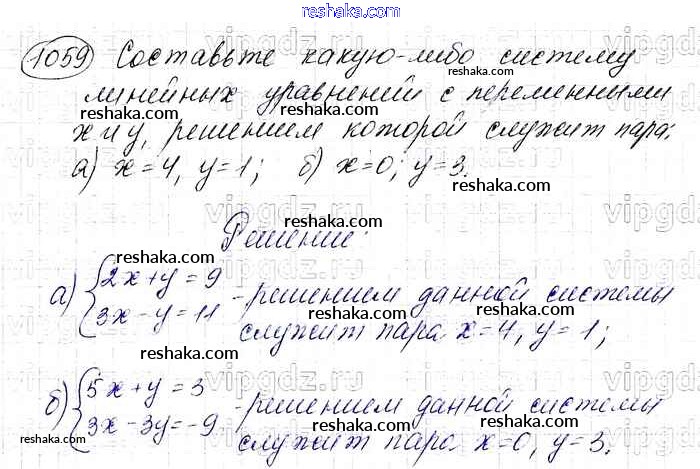 reshaka.com
1059 Составьте какую-либо систему
reshaka.com
линейных уравнений с переменными
reshaka.com
x и y, решением которой служит пара:
reshaka.com
а) x=4, y=1; б) x=0, y=3.
reshaka.com
vipgdz.ru
reshaka.com
Решение:
reshaka.com
а) {2x+y=9
3x-y=11 - решением данной системы
reshaka.com
служит пара x=4, y=1;
reshaka.com
vipgdz.ru
б) {5x+y=3
reshaka.com
3x-3y=-9 - решением данной системы
reshaka.com
служит пара x=0, y=3.